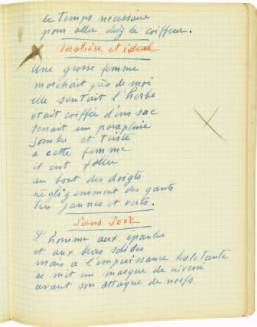 le temps nécessaire
pour aller chez le coiffeur.
Matière et idéal
Une grosse femme
marchait près de moi
elle sentait l'herbe
était coiffée d'un sac
tenant un parapluie
sombre et triste
à cette femme
il eut fallu
au bout des doigts
négligemment des gants
très jaunes et verts.
Sans Sexe
L'homme aux épaules
et aux bras solides
mais à l'impuissance haletante
se mit un masque de
avant son attaque de nerfs